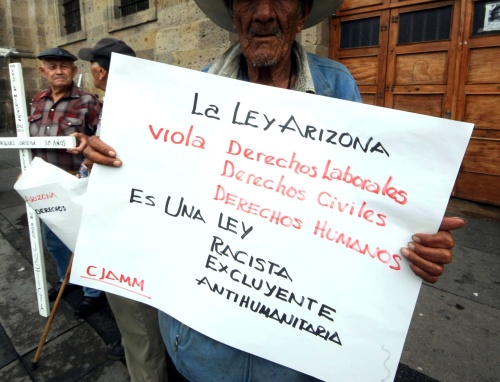 LA LEY ARIZONA
VIOLA DERECHOS LABORALES
DERECHOS CIVILES
DERECHOS HUMANOS
ES UNA LEY
RACISTA
EXCLUYENTE
ANTIHUMANITARIA
CJAMM
30 AÑOS
ARIZONA
DERECHOS